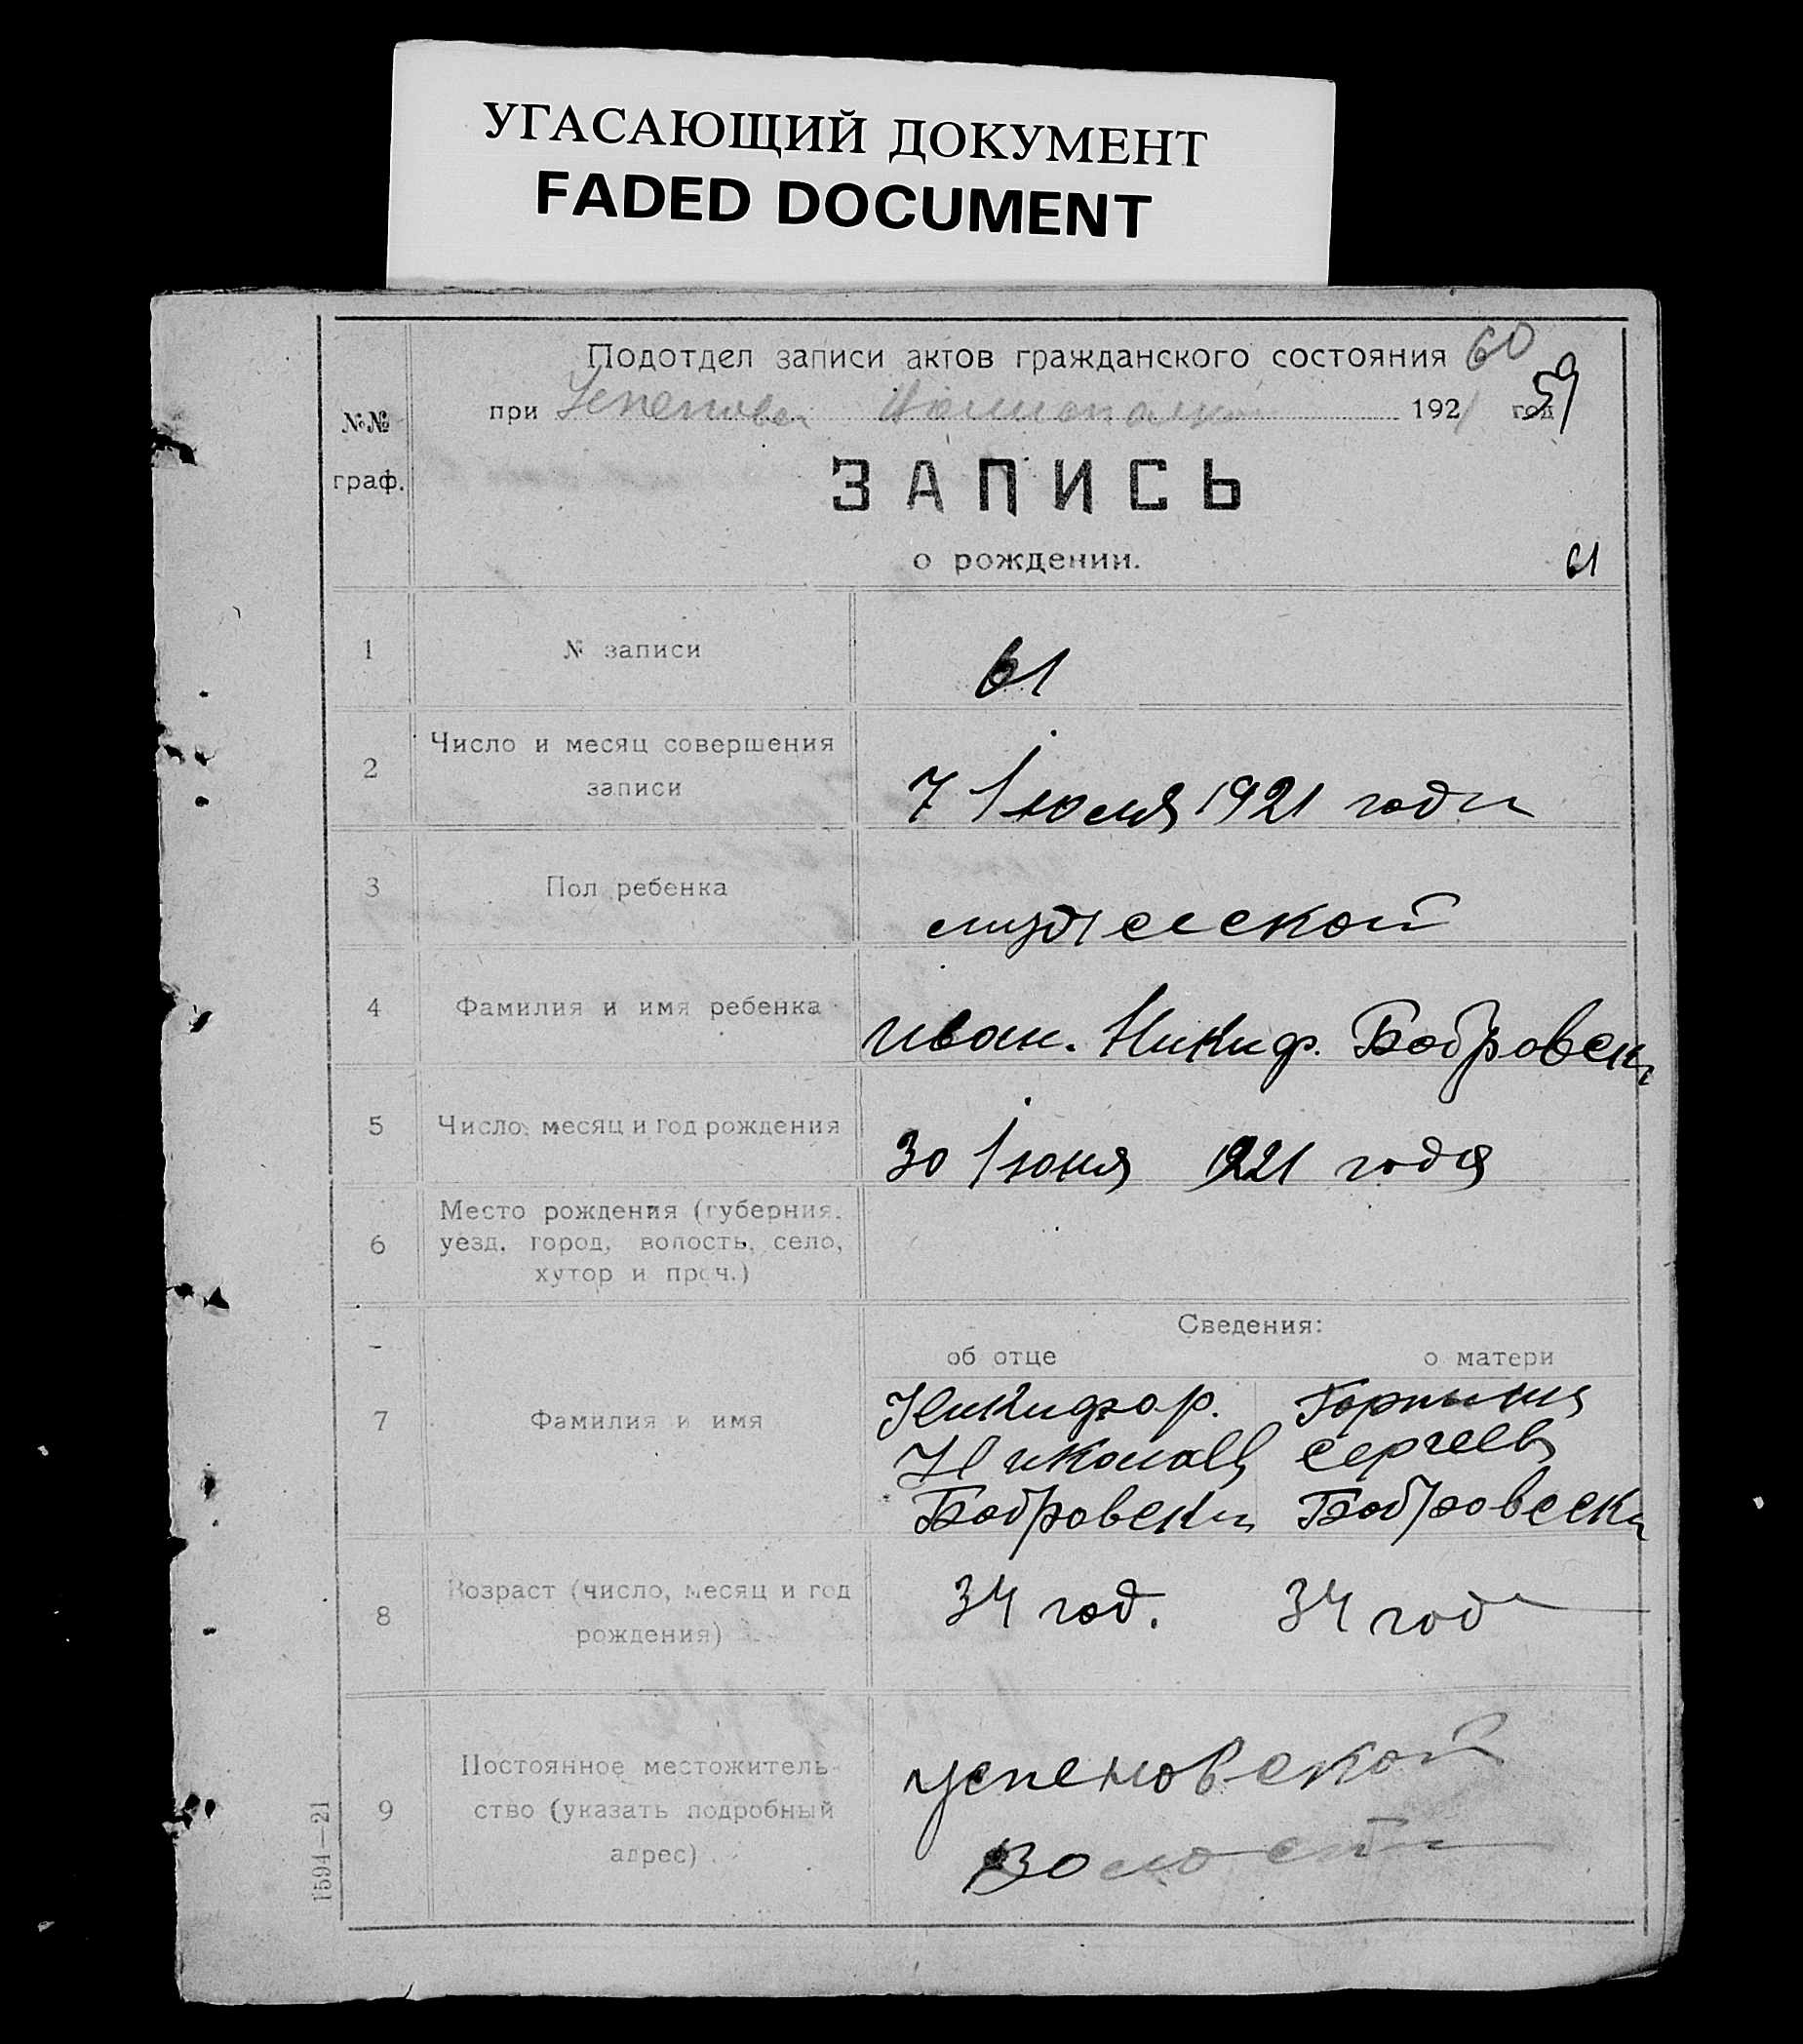 УГАСАЮЩИЙ ДОКУМЕНТ
FADED DOCUMENT
Подотдел записи актов гражданского состояния 60
при 1921 год 59
№№ граф.
ЗАПИСЬ
о рождении.
61
1 № записи 61
2 Число и месяц совершения
записи
7 Июля 1921 года
3 Пол ребенка мужеской
4 Фамилия и имя ребенка Иван. Никиф. Бобровски
5 Число, месяц и год рождения 30 Июня 1921 годя
6 Место рождения (губерния,
уезд, город, волость, село,
хутор и проч.)
Сведения:
об отце о матери
7 Фамилия и имя
Никифор. Горпыня
Николаев Сергеев
Бобровски Бобровески
8 Возраст (число, месяц и год
рождения)
34 год. 34 год
9 Постоянное местожитель-
ство (указать подробный
адрес)
успеновской
волости
1594—21